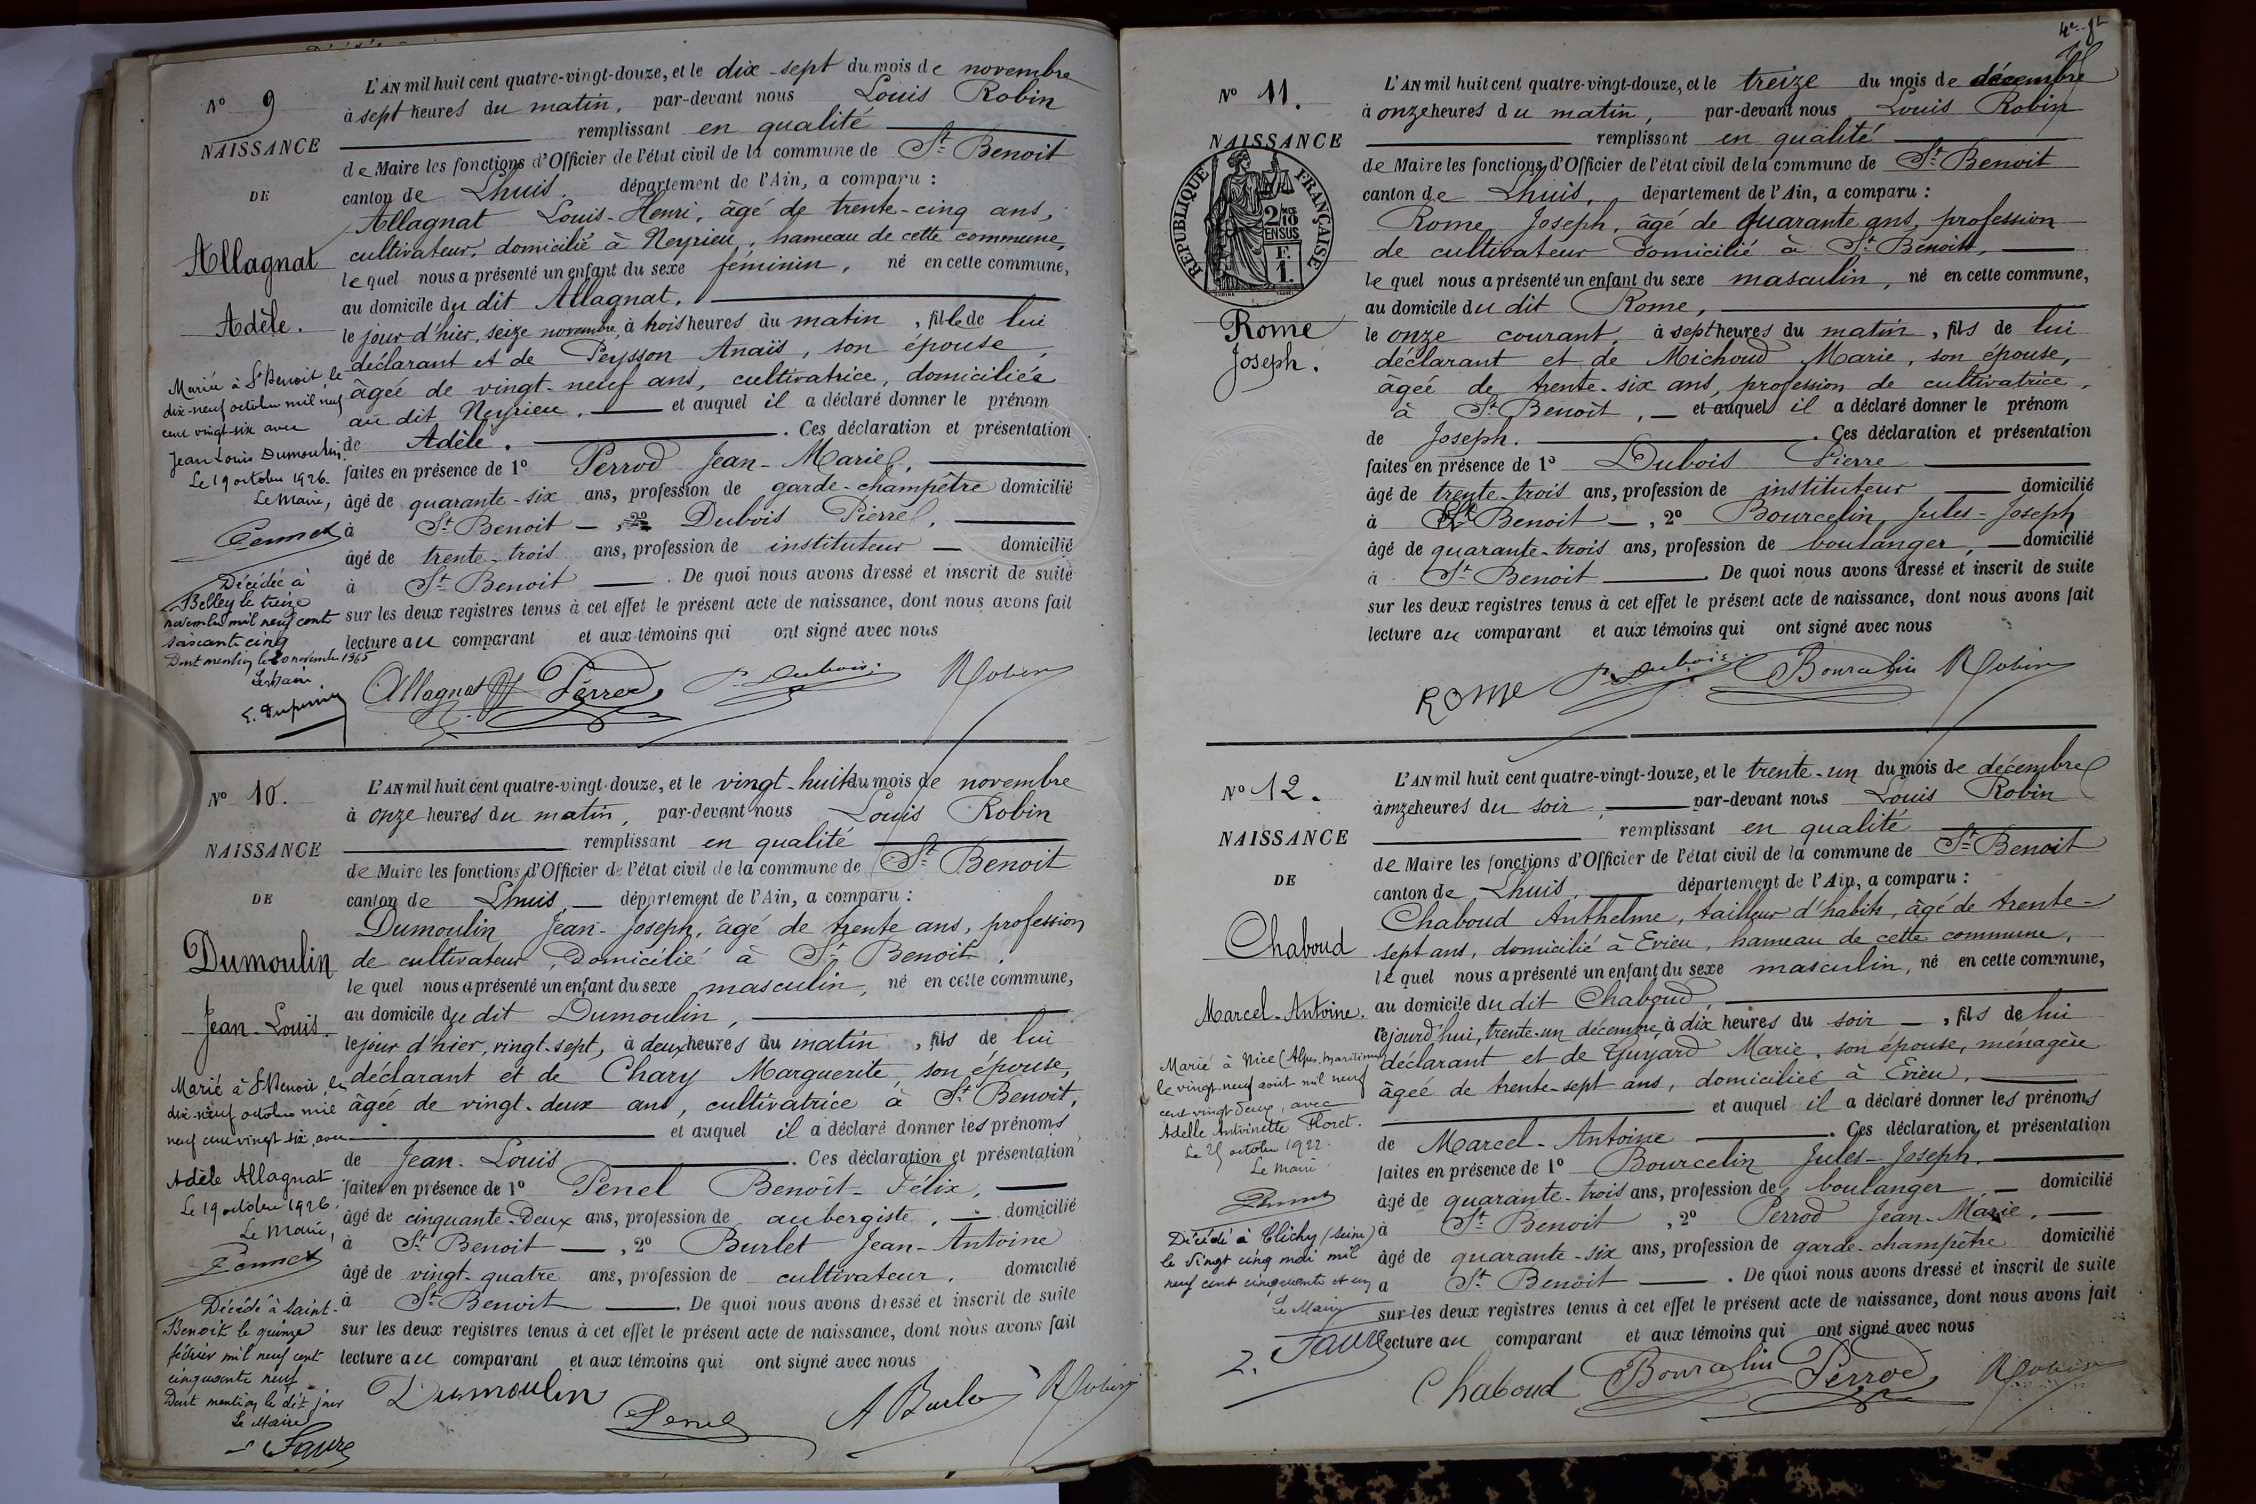 N° 9
NAISSANCE
DE
Allagnat
Adèle.
Mariée à St Benoit, le
dix-neuf octobre mil neuf
cent vingt-six avec
Jean Louis Dumoulin.
Le 19 octobre 1926.
Le Maire,
Décédée à
Belley le treize
novembre mil neuf cent
soixante cinq
Dont mention le 20 novembre 1965
Le Maire
L'AN mil huit cent quatre-vingt-douze, et le dix-sept du mois de novembre
à sept heures du matin, par-devant nous Louis Robin
remplissant en qualité
de Maire les fonctions d'Officier de l'état civil de la commune de St Benoit
canton de Lhuis, département de l'Ain, a comparu :
Allagnat Louis-Henri, âgé de trente-cinq ans,
cultivateur, domicilié à Neyrieu, hameau de cette commune,
lequel nous a présenté un enfant du sexe féminin, né en cette commune,
au domicile du dit Allagnat,
le jour d'hier, seize novembre, à trois heures du matin, fille de lui
déclarant et de Peysson Anaïs, son épouse,
âgée de vingt-neuf ans, cultivatrice, domiciliée
au dit Neyrieu, et auquel il a déclaré donner le prénom
de Adèle. Ces déclaration et présentation
faites en présence de 1° Perrod Jean-Marie,
âgé de quarante-six ans, profession de garde-champêtre domicilié
à St Benoit, 2° Dubois Pierre,
âgé de trente-trois ans, profession de instituteur domicilié
à St Benoit. De quoi nous avons dressé et inscrit de suite
sur les deux registres tenus à cet effet le présent acte de naissance, dont nous avons fait
lecture au comparant et aux témoins qui ont signé avec nous
Allagnat Perrod P. Dubois Robin
N° 10.
NAISSANCE
DE
Dumoulin
Jean-Louis.
Marié à St Benoit, le
dix-neuf octobre mil
neuf cent vingt six, avec
Adèle Allagnat
Le 19 octobre 1926.
Le Maire,
Décédé à Saint-
Benoit le quinze
février mil neuf cent
cinquante neuf
Dont mention le dit jour
Le Maire
Faure
L'AN mil huit cent quatre-vingt-douze, et le vingt-huit du mois de novembre
à onze heures du matin, par-devant nous Louis Robin
remplissant en qualité
de Maire les fonctions d'Officier de l'état civil de la commune de St Benoit
canton de Lhuis, département de l'Ain, a comparu :
Dumoulin Jean-Joseph, âgé de trente ans, profession
de cultivateur, domicilié à St Benoit,
lequel nous a présenté un enfant du sexe masculin, né en cette commune,
au domicile du dit Dumoulin,
le jour d'hier, vingt-sept, à deux heures du matin, fils de lui
déclarant et de Chary Marguerite son épouse,
âgée de vingt-deux ans, cultivatrice à St Benoit,
et auquel il a déclaré donner les prénoms
de Jean-Louis. Ces déclaration et présentation
faites en présence de 1° Penel Benoit-Félix,
âgé de cinquante-deux ans, profession de aubergiste, domicilié
à St Benoit, 2° Burlet Jean-Antoine
âgé de vingt-quatre ans, profession de cultivateur, domicilié
à St Benoit. De quoi nous avons dressé et inscrit de suite
sur les deux registres tenus à cet effet le présent acte de naissance, dont nous avons fait
lecture au comparant et aux témoins qui ont signé avec nous
Dumoulin Penel A Burlet Robin
N° 11.
NAISSANCE
RÉPUBLIQUE FRANÇAISE
2/10 EN SUS
F. 1.
Rome
Joseph.
L'AN mil huit cent quatre-vingt-douze, et le treize du mois de décembre
à onze heures du matin, par-devant nous Louis Robin
remplissant en qualité
de Maire les fonctions d'Officier de l'état civil de la commune de St Benoit
canton de Lhuis, département de l'Ain, a comparu :
Rome Joseph, âgé de quarante ans, profession
de cultivateur domicilié à St Benoit,
lequel nous a présenté un enfant du sexe masculin, né en cette commune,
au domicile du dit Rome,
le onze courant, à sept heures du matin, fils de lui
déclarant et de Michoud Marie, son épouse,
âgée de trente-six ans, profession de cultivatrice,
à St Benoit, et auquel il a déclaré donner le prénom
de Joseph. Ces déclaration et présentation
faites en présence de 1° Dubois Pierre
âgé de trente-trois ans, profession de instituteur domicilié
à St Benoit, 2° Bourcelin, Jules-Joseph
âgé de quarante-trois ans, profession de boulanger, domicilié
à St Benoit. De quoi nous avons dressé et inscrit de suite
sur les deux registres tenus à cet effet le présent acte de naissance, dont nous avons fait
lecture au comparant et aux témoins qui ont signé avec nous
ROME P. Dubois Bourcelin Robin
N° 12.
NAISSANCE
DE
Chaboud
Marcel-Antoine.
Marié à Nice (Alpes Maritimes)
le vingt-neuf août mil neuf
cent vingt deux, avec
Adelle Antoinette Floret.
Le 25 octobre 1922.
Le Maire
Décédé à Clichy (Seine)
le vingt cinq mai mil
neuf cent cinquante et un
Le Maire
Faure
L'AN mil huit cent quatre-vingt-douze, et le trente-un du mois de décembre
à onze heures du soir, par-devant nous Louis Robin
remplissant en qualité
de Maire les fonctions d'Officier de l'état civil de la commune de St Benoit
canton de Lhuis, département de l'Ain, a comparu :
Chaboud Anthelme, tailleur d'habits, âgé de trente-
sept ans, domicilié à Evieu, hameau de cette commune,
lequel nous a présenté un enfant du sexe masculin, né en cette commune,
au domicile du dit Chaboud,
cejourd'hui, trente-un décembre, à dix heures du soir, fils de lui
déclarant et de Guyard Marie, son épouse, ménagère
âgée de trente-sept ans, domiciliée à Evieu,
et auquel il a déclaré donner les prénoms
de Marcel-Antoine. Ces déclaration et présentation
faites en présence de 1° Bourcelin Jules-Joseph,
âgé de quarante-trois ans, profession de boulanger, domicilié
à St Benoit, 2° Perrod Jean-Marie,
âgé de quarante-six ans, profession de garde-champêtre domicilié
à St Benoit. De quoi nous avons dressé et inscrit de suite
sur les deux registres tenus à cet effet le présent acte de naissance, dont nous avons fait
lecture au comparant et aux témoins qui ont signé avec nous
Chaboud Bourcelin Perrod Robin